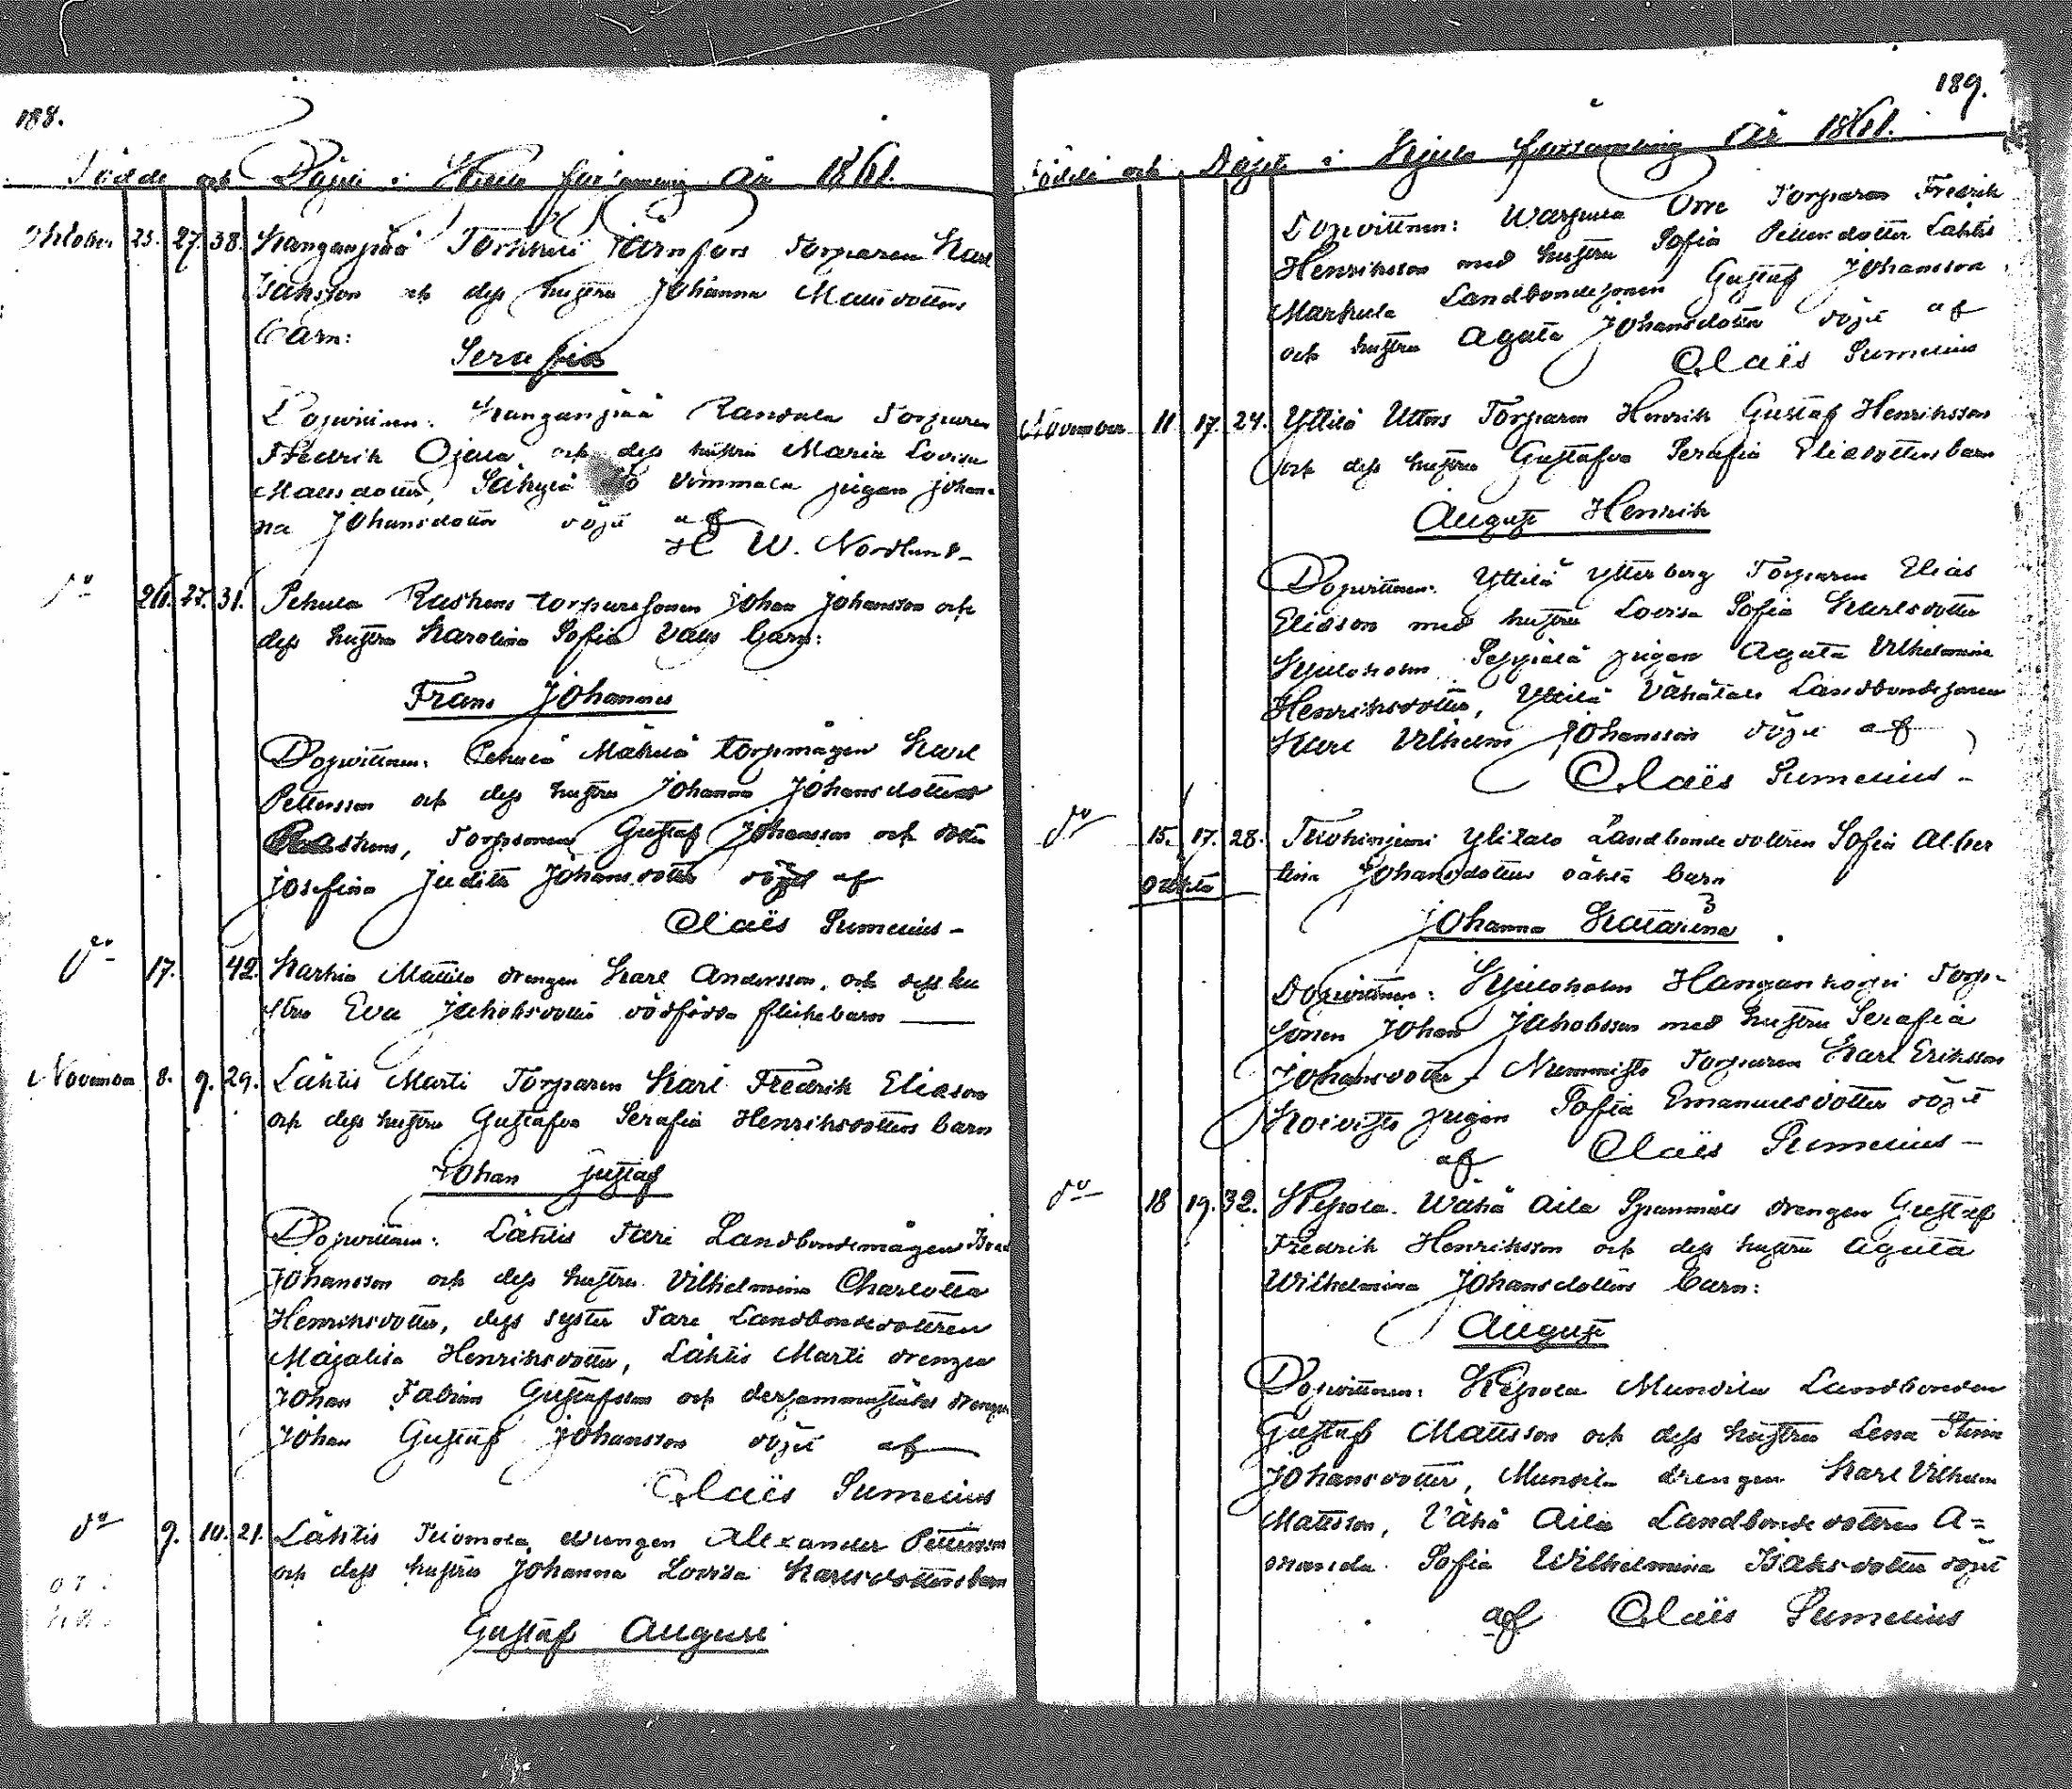 188.
Födde och Döpte i Kjulo församling År 1861.
Oktober 25. 27. 38. Kanganpää Torkkeli Järnfors Torparen Karl
Isaksson och dess hustru Johanna Matsdotters
barn:
Serafia
Dopvittnen: Kanganpää Randala Torparen
Fredrik Ojala och dess hustru Maria Lovisa
Matsdotter, Säkylä Vimmala pigan Johan-
na Johansdotter döpt af
H W. Nordlund
do 26. 27. 31. Pehula Raskens torparesonen Johan Johansson och
dess hustru Karolina Sofia Vass barn:
Frans Johannes
Dopvittnen: Mäkilä torpmågen Karl
Pettersson och dess hustru Johanna Johansdotter
Raskens, Torpsonen Gustaf Johansson och dottr
Josefina Judith Johansdotter döpt af
Claës Sumelius
do 17. 42. Karhia Mattila drengen Karl Andersson, och dess hu
stru Eva Jakobsdotters dödfödda flickebarn
November 8. 9. 29. Lähtis Marti Torparen Karl Fredrik Eliason
och dess hustru Gustafva Serafia Henriksdotters barn
Johan Gustaf
Dopvittnen: Lähtis Tari Landbondemågen
Johansson och dess hustru Vilhelmina Charlotta
Henriksdotter, dess syster Tari Landbondedottren
Majalisa Henriksdotter, Lähtis Marti drengen
Johan Fabian Gustafsson och dersammastädes drengen
Johan Gustaf Johansson döpt af
Claës Sumelius
do 9. 10. 21. Lähtis drengen Alexander Pettersson
och dess hustru Johanna Lovisa Karlsdotters barn
Gustaf August
189.
Födde och Döpte i Kjulo församling År 1861.
Dopvittnen: Orre Torparen Fredrik
Henriksson med hustru Sofia Pettersdotter Lähtis
Markula Landbondesonen Gustaf Johansson
och hustru Agata Johansdotter döpt af
Claës Sumelius
November 11 17. 24. Yttilä Utters Torparen Henrik Gustaf Henriksson
och dess hustru Gustafva Serafia Eliedotters barn
August Henrik
Dopvittnen: Yttilä Ytterberg Torparen Elias
Eliason med hustru Lovisa Sofia Karlsdotter
Kjuloholm Seppälä pigan Agata Vilhelmina
Henriksdotter, Yttilä Vähätalo Landbondesonen
Karl Vilhelm Johansson döpt af
Claës Sumelius
do 15. 17. 28. Tuohiniemi Ylitalo Landbonde dottren Sofia Alber
tina Johansdotters oäkta barn
Oäkta
Johanna Katarina
Dopvittnen: Kjuloholm Hangankorpi Torp-
sonen Johan Jakobsson med hustru Serafia
Johansdotter Nummisto Torparen Karl Eriksson
Koivisto pigan Sofia Emanuelsdotter döpt
af Claës Sumelius
do 18 19. 32. Kepola Wähä Aila Spannmåls drengen Gustaf
Fredrik Henriksson och dess hustru Agata
Wilhelmina Johansdotters barn:
August
Dopvittnen: Kepola Mundila Landbonden
Gustaf Mattsson och dess hustru Lena Stina
Johansdotter, Mundila drengen Karl Vilhelm
Mattsson, Vähä Aila Landbonde dottren A=
manda Sofia Wilhelmina Isaksdotter döpt
af Claës Sumelius